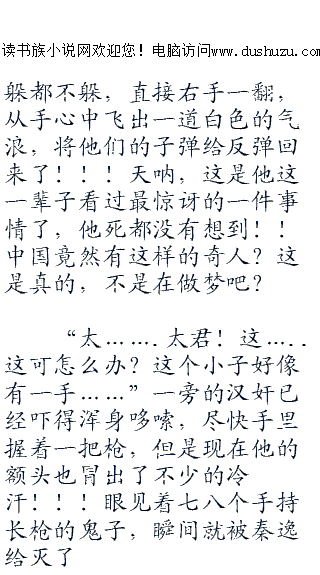 读书族小说网欢迎您！电脑访问www.dushuzu.com
躲都不躲，直接右手一翻，
从手心中飞出一道白色的气
浪，将他们的子弹给反弹回
来了！！！天呐，这是他这
一辈子看过最惊讶的一件事
情了，他死都没有想到！！
中国竟然有这样的奇人？这
是真的，不是在做梦吧？
“太…….太君！这…..
这可怎么办？这个小子好像
有一手……”一旁的汉奸已
经吓得浑身哆嗦，尽快手里
握着一把枪，但是现在他的
额头也冒出了不少的冷
汗！！！眼见着七八个手持
长枪的鬼子，瞬间就被秦逸
给灭了